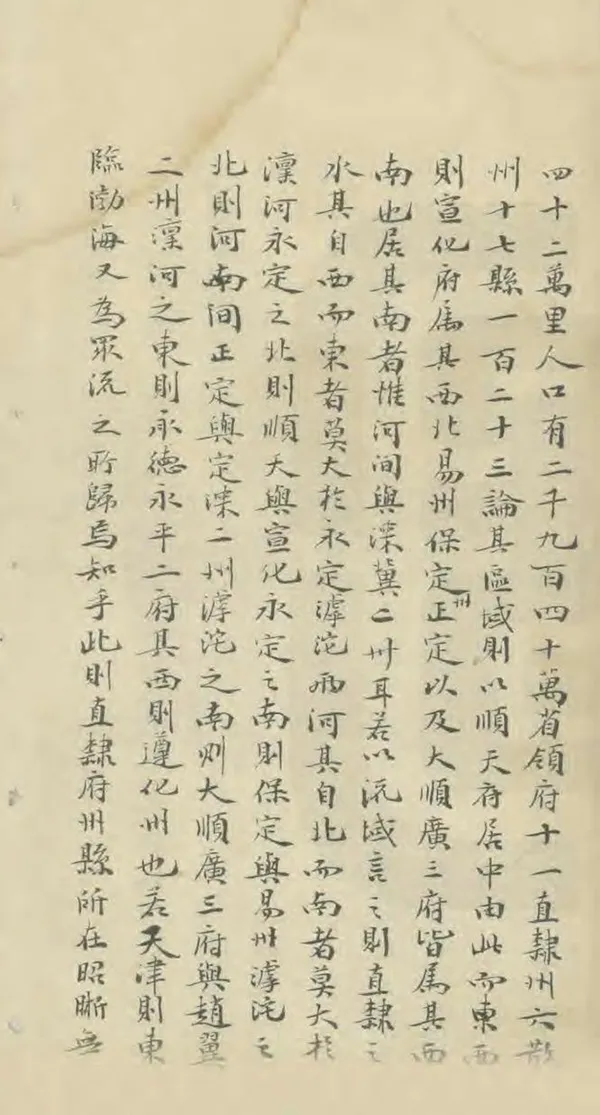 四十二萬里人口有二千九百四十萬省領府十一直隸州六散
州十七縣一百二十三論其區域則以順天府居中由此而東西
則宣化府為其西北易州保定正定州以及大順廣三府皆為其西
南也居其南者惟河间與深冀二州耳若以流域言之則直隸之
水其自西而東者莫大於永定滹沱兩河其自北而南者莫大於
灤河永定之北則順天與宣化永定之南則保定與易州滹沱之
北則河南间正定與定深二州滹沱之南则大順廣三府與趙冀
二州灤河之東則承德永平二府其西則遵化州也若天津則東
臨渤海又為眾流之所歸焉知乎此則直隸府州縣所在昭晰無